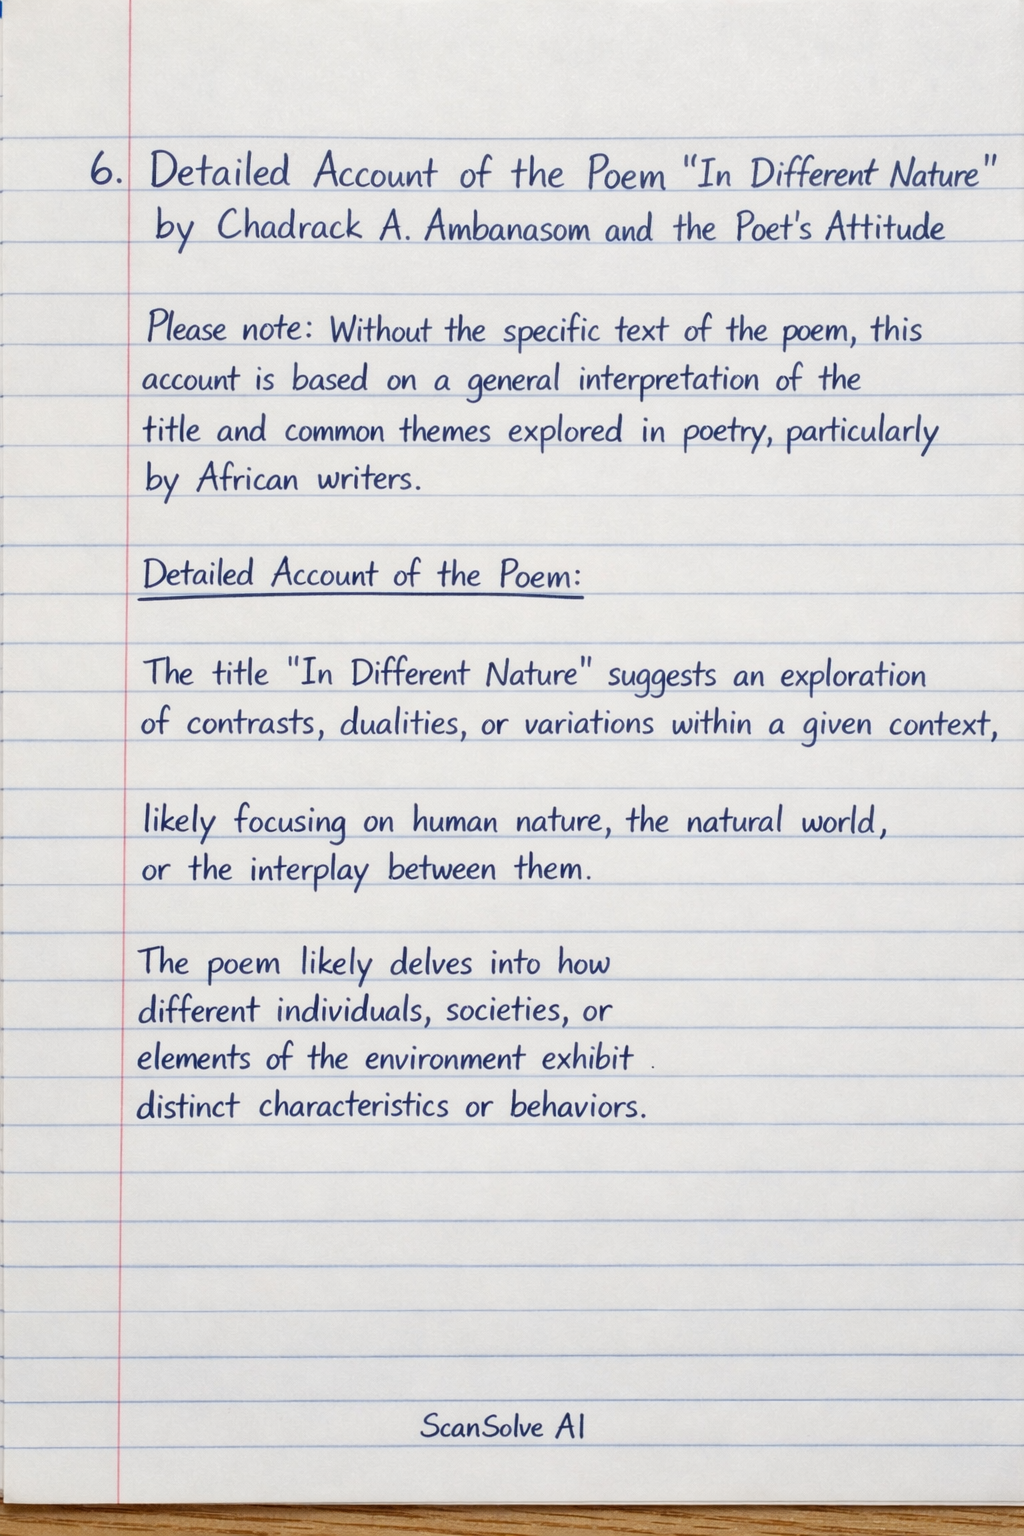 6. Detailed Account of the Poem "In Different Nature"
by Chadrack A. Ambanasom and the Poet's Attitude
Please note: Without the specific text of the poem, this
account is based on a general interpretation of the
title and common themes explored in poetry, particularly
by African writers.
Detailed Account of the Poem:
The title "In Different Nature" suggests an exploration
of contrasts, dualities, or variations within a given context,
likely focusing on human nature, the natural world,
or the interplay between them.
The poem likely delves into how
different individuals, societies, or
elements of the environment exhibit
distinct characteristics or behaviors.
ScanSolve AI